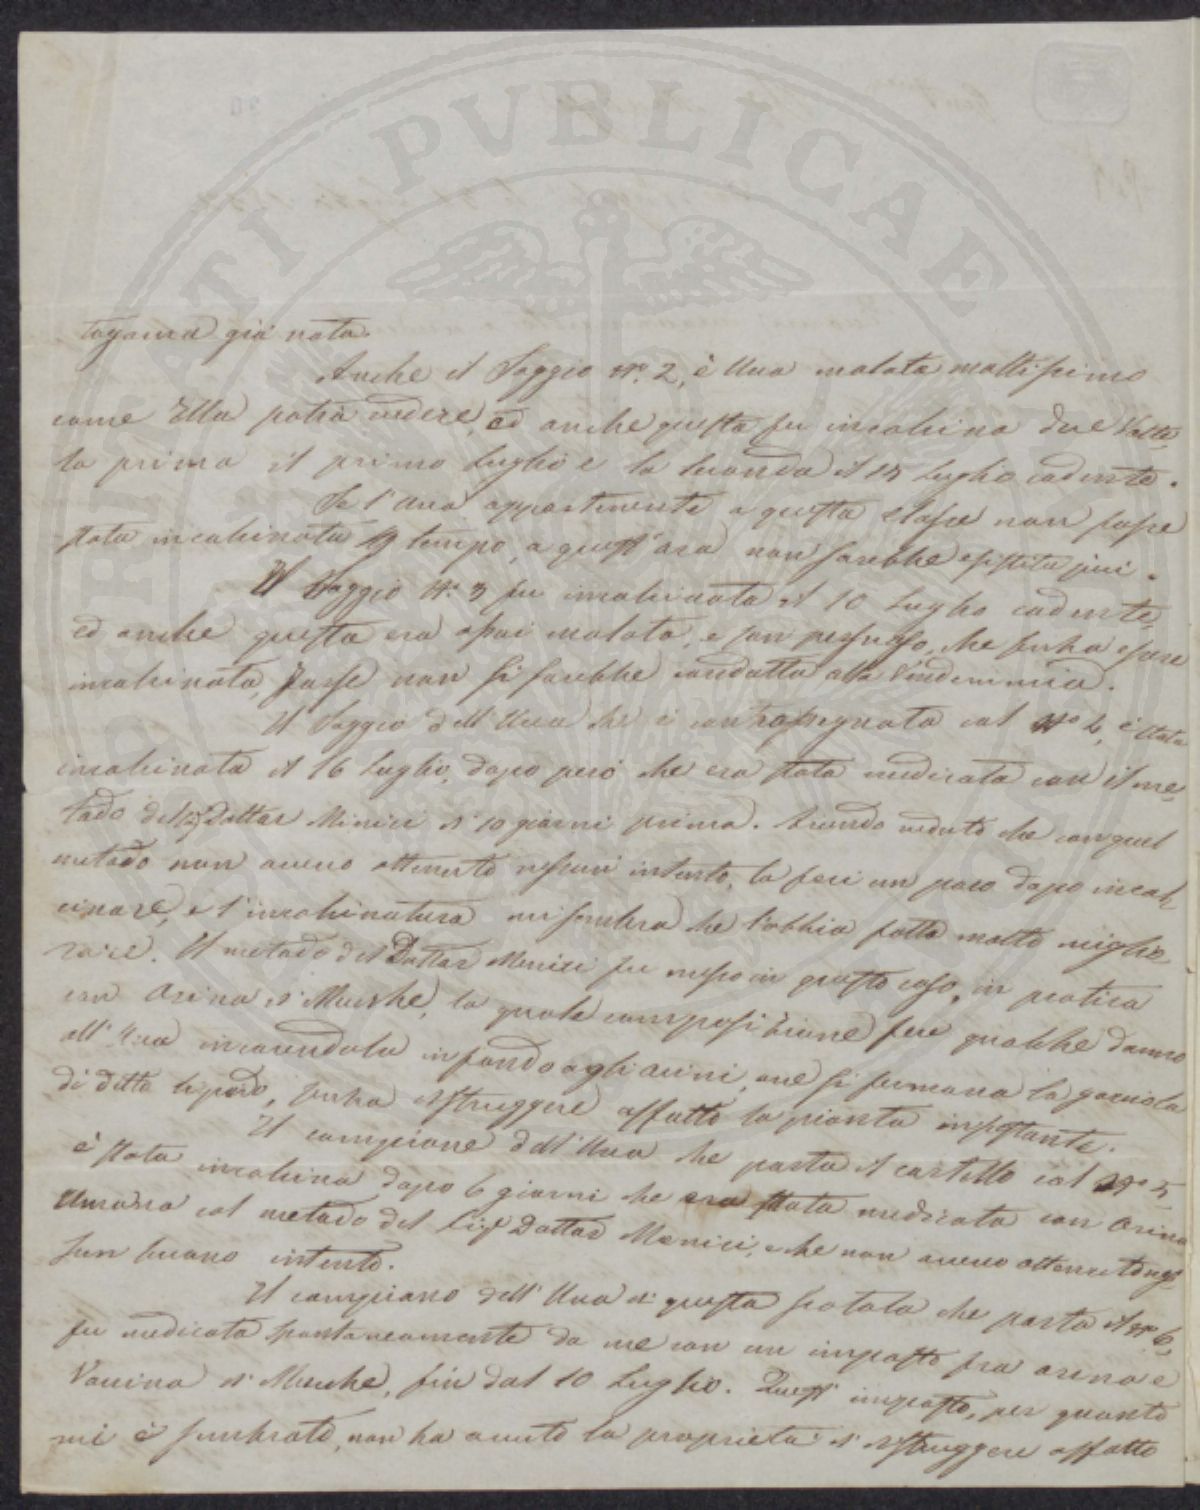 togama già nata.
Anche il Saggio N.º 2, è Uva malata moltissimo
come Ella potrà vedere, ed anche questa fu incalcina due Volte,
la prima il primo Luglio e la seconda il 15 Luglio cadente.
Se l'uva appartenente a questa classe non fosse
stata incalcinata a tempo, a quest'ora non sarebbe esistita più.
Il Saggio N.º 3 fu incalcinata il 10 Luglio cadente,
ed anche questa era assai malata, e son persuaso, che senza essere
incalcinata, forse non si sarebbe condotta alla Vindemmia.
Il Saggio dell'Uva che è contrassegnata col N.º 4, è stata
incalcinata il 16 Luglio, dopo però che era stata medicata con il me-
todo del Dottor Menici di 10 giorni prima. Avendo veduto che con quel
metodo non avevo ottenuto nessun intento, la feci un poco dopo incal-
cinare, e l'incalcinatura mi sembra che l'abbia fatta molto miglio-
rare. Il metodo del Dottor Menici fu messo in questo caso, in pratica
con Orina di Mucche, la quale composizione fece qualche danno
all'Uva incavandola in fondo agli acini, ove si fermava la gocciola
di detto liquido, senza distruggere affatto la pianta infestante.
Il campione dell'Uva che porta il cartello col N.º 5
è stata incalcina dopo 6 giorni che era stata medicata con Orina
Umana col metodo del Sig.r Dottor Menici, e che non avevo ottenuto nes-
sun buono intento.
Il campione dell'Uva di questa scatola che porta il N.º 6,
fu medicata spontaneamente da me con un impasto fra orina e
Vaccina di Mucche, fin dal 10 Luglio. Quest'impasto, per quanto
mi è sembrato, non ha avuto la proprietà di distruggere affatto
PERINATI PUBLICAE